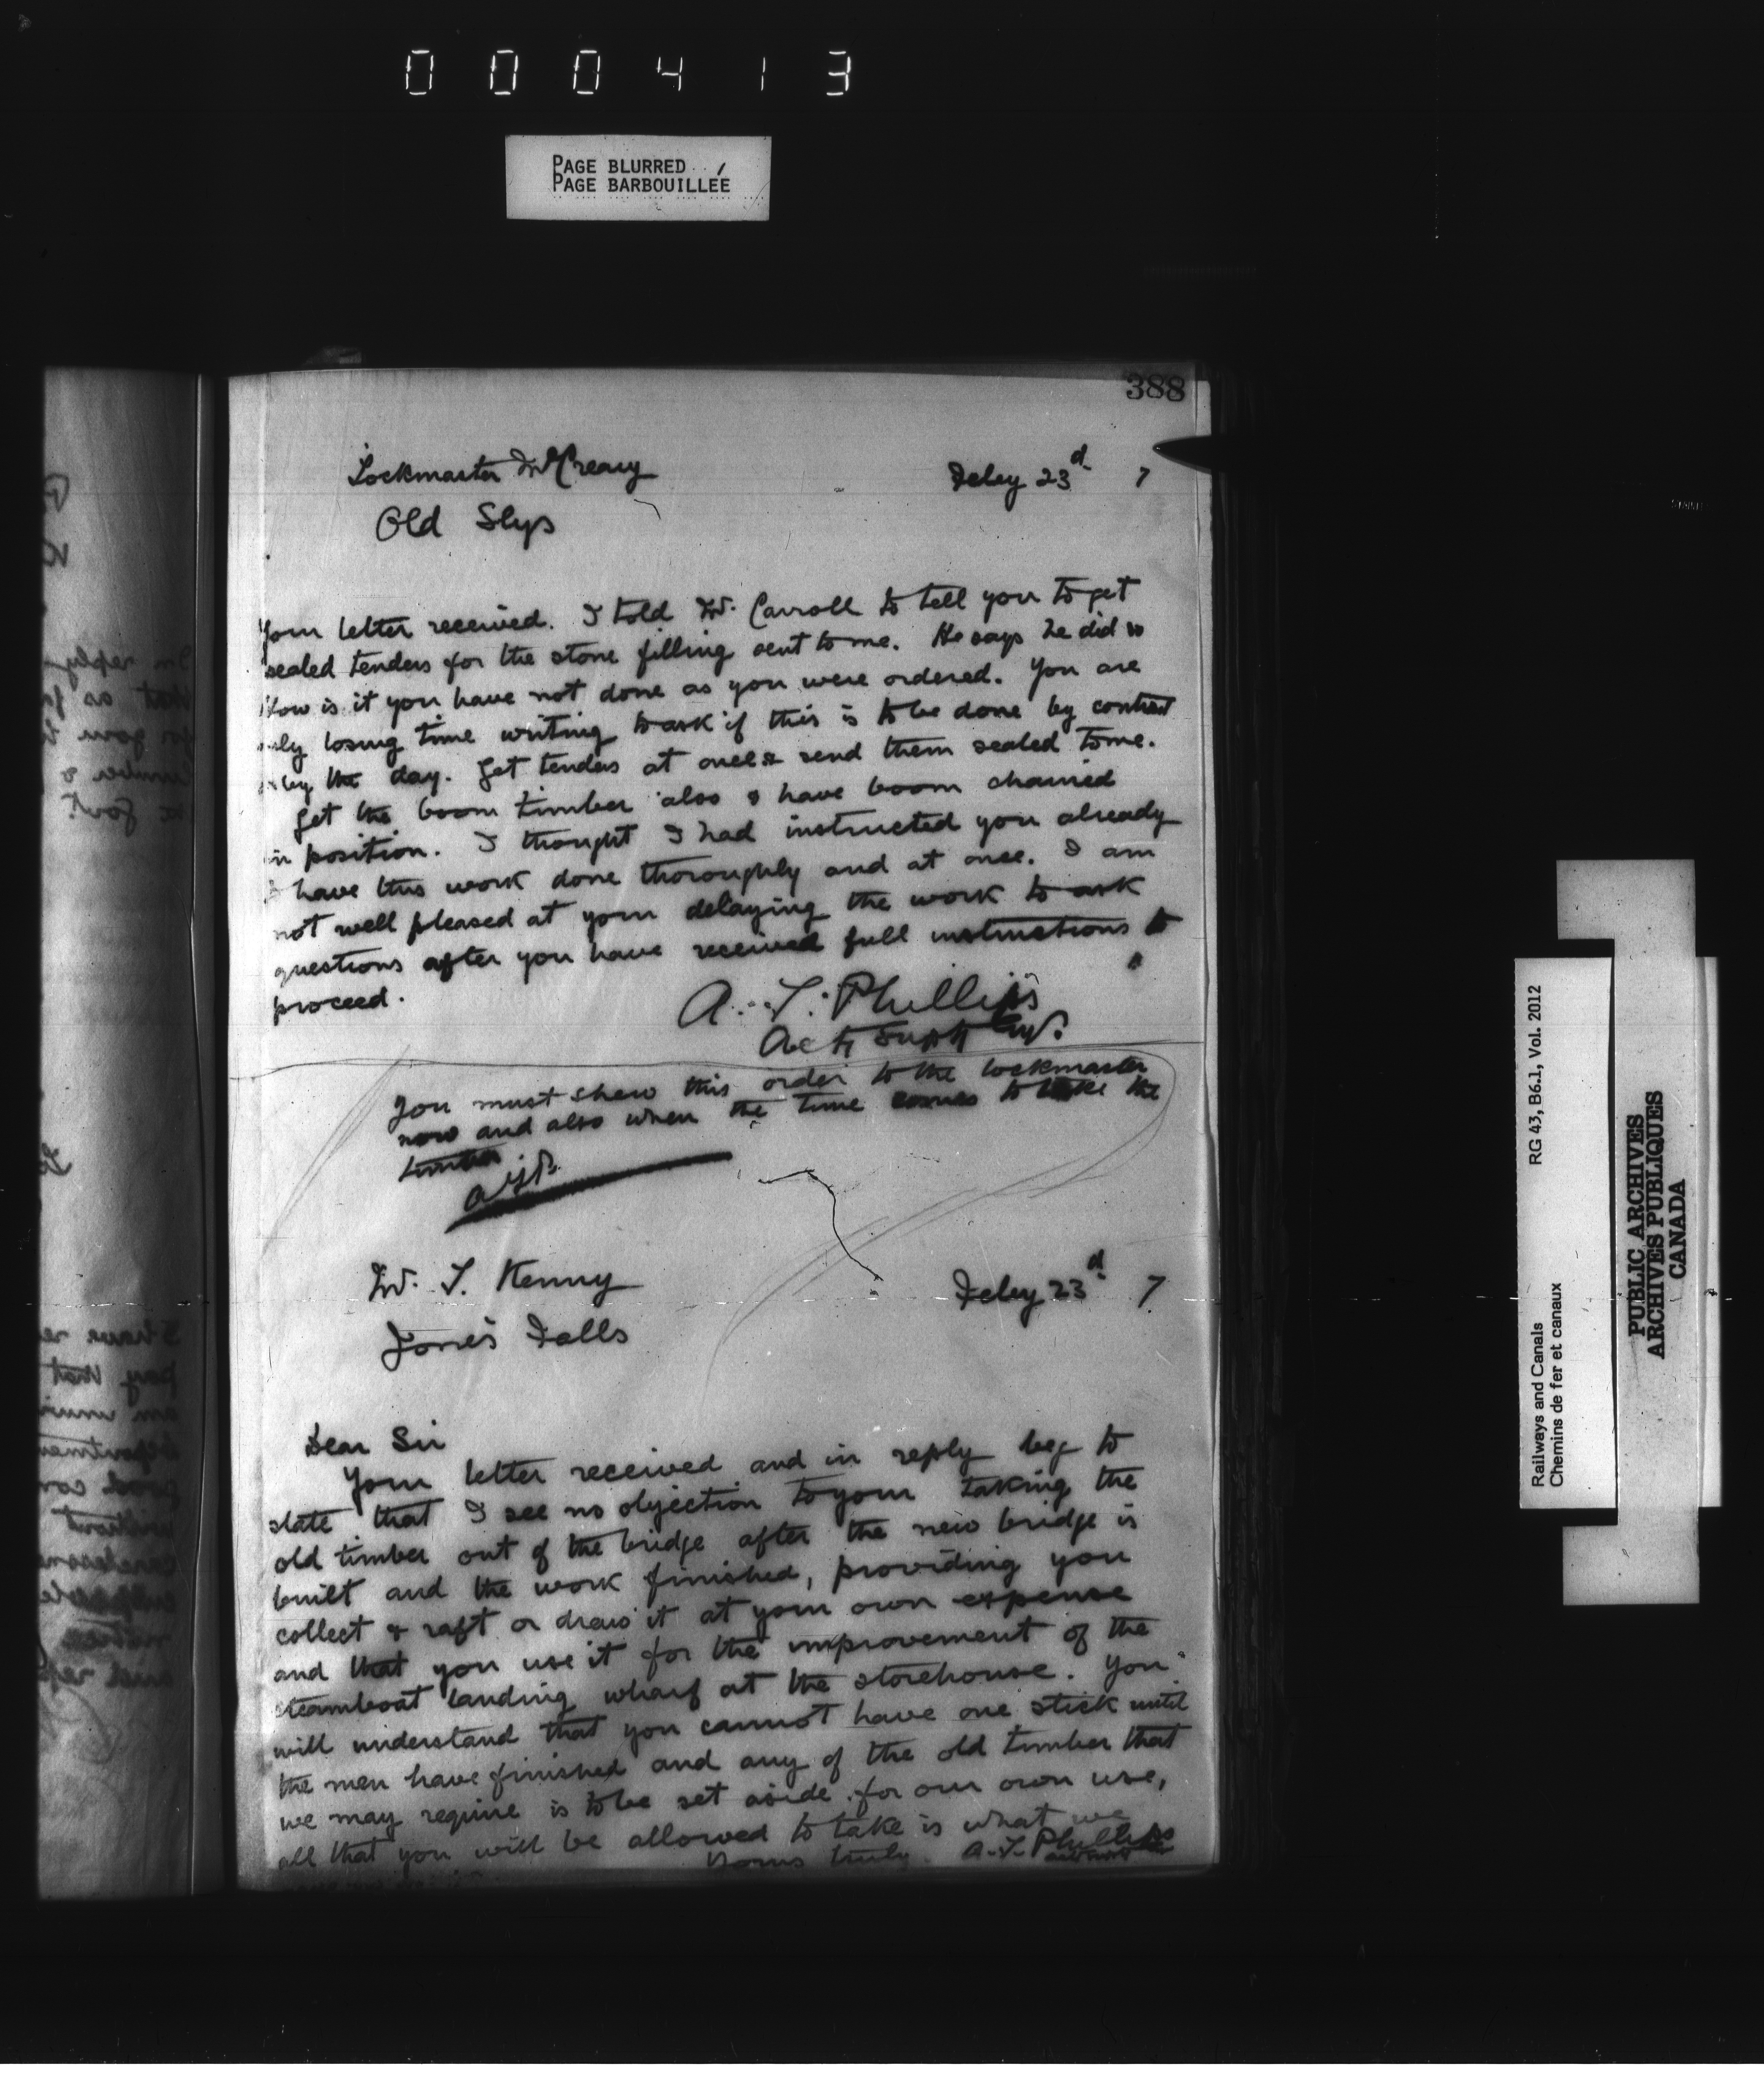 000413
PAGE BLURRED
PAGE BARBOUILLÉE
388
Lockmaster McCreary Feby 23d 7
Old Slys
Your letter received. I told Mr. Carroll to tell you to get
sealed tenders for the stone filling sent to me. He says he did so
How is it you have not done as you were ordered. You are
only losing time writing to ask if this is to be done by contract
or by the day. Get tenders at once & send them sealed to me.
Get the boom timber also & have boom chained
in position. I thought I had instructed you already
have this work done thoroughly and at once. I am
not well pleased at your delaying the work to ask
questions after you have received full instructions to
proceed.
A. T. Phillips
Act Supt Eng.
You must shew this order to the lockmaster
now and also when the time comes to take the
timber.
A.T.P.
Mr. T. Kenny Feby 23d 7
Jones Falls
Dear Sir
Your letter received and in reply beg to
state that I see no objection to your taking the
old timber out of the bridge after the new bridge is
built and the work finished, providing you
collect & raft or draw it at your own expense
and that you use it for the improvement of the
steamboat landing wharf at the storehouse. You
will understand that you cannot have one stick until
the men have finished and any of the old timber that
we may require is to be set aside for our own use,
all that you will be allowed to take is what we
Yours truly A.T. Phillips
Railways and Canals RG 43, B6.1, Vol. 2012
Chemins de fer et canaux
PUBLIC ARCHIVES
ARCHIVES PUBLIQUES
CANADA